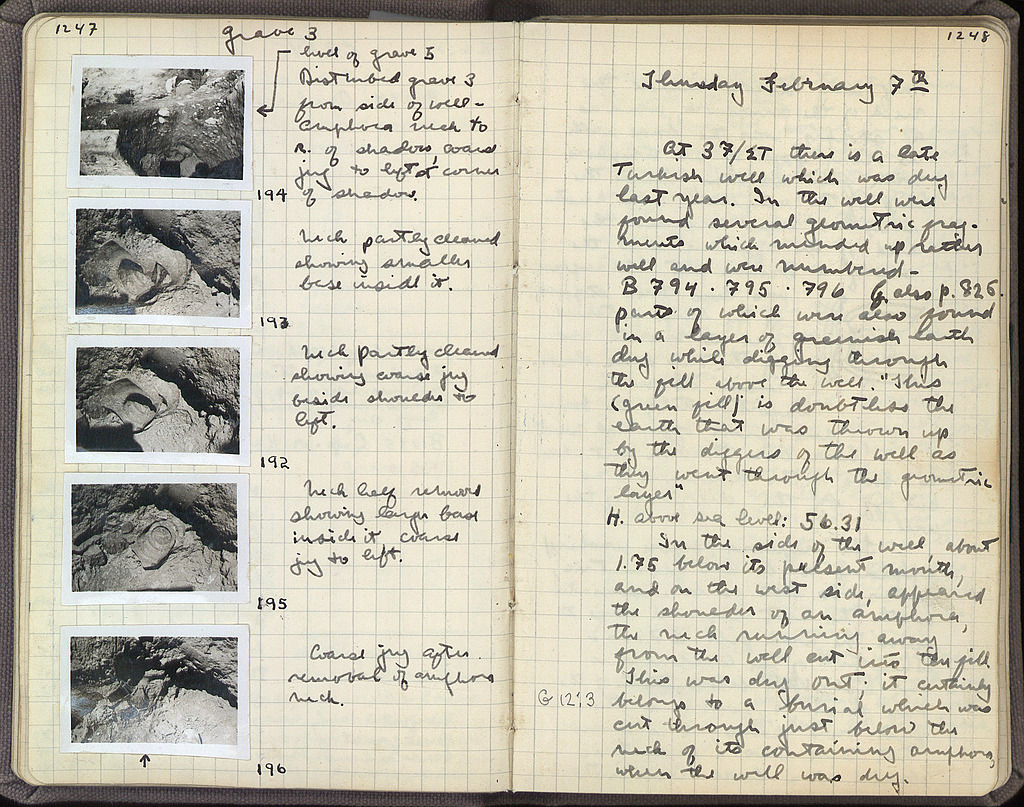 1247
grave 3
level of grave 5
Disturbed grave 3
from side of well -
amphora neck to
r. of shadow, coarse
jug to left of corner
of shadow.
194
Neck partly cleaned
showing smaller
base inside it.
193
Neck partly cleaned
showing coarse jug
beside shoulder to
left.
192
Neck half removed
showing large base
inside it coarse
jug to left.
195
Coarse jug after
removal of amphora
neck.
196
1248
Thursday February 7th
At 37/ΣΤ there is a late
Turkish well which was dug
last year. In the well were
found several geometric frag-
ments which mended up rather
well and were numbered -
B 794 · 795 · 796 cf. also p. 826.
parts of which were also found
in a layer of greenish earth
dug while digging through
the fill above the well. "This
(green fill) is doubtless the
earth that was thrown up
by the diggers of the well as
they went through the geometric
layer"
H. above sea level: 56.31
In the side of the well, about
1.75 below its present mouth,
and on the west side, appeared
the shoulder of an amphora,
the neck running away
from the well cut into the fill.
This was dug out; it certainly
G 12:3
belongs to a burial which was
cut through just below the
neck of its containing amphora,
when the well was dug.